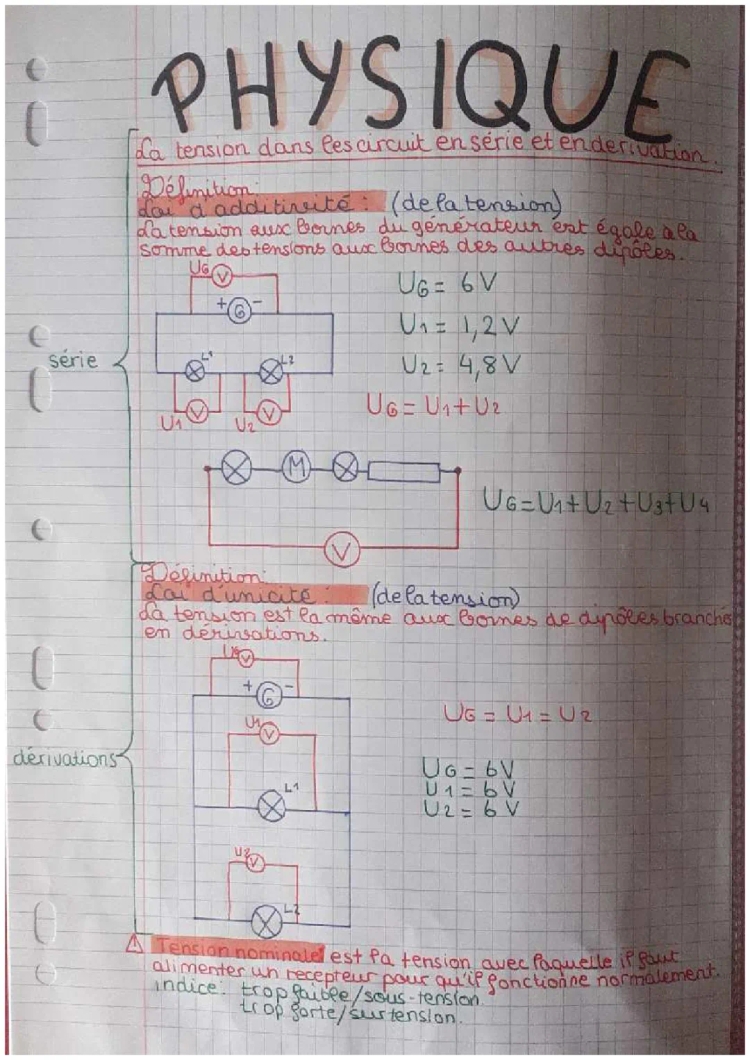 PHYSIQUE
La tension dans les circuit en série et en derivation.
Définition:
Loi d'additivité : (de la tension)
La tension aux bornes du générateur est égale a la
somme des tensions aux bornes des autres dipôles.
UG V
+ G -
L1 L2
V V
U1 U2
UG = 6 V
U1 = 1,2 V
U2 = 4,8 V
UG = U1 + U2
série
M
UG = U1 + U2 + U3 + U4
V
Définition:
Loi d'unicité : (de la tension)
La tension est la même aux bornes de dipôles branchés
en dérivations.
UG V
+ G -
U1 V
L1
U2 V
L2
UG = U1 = U2
UG = 6V
U1 = 6V
U2 = 6V
dérivations
⚠ Tension nominale est la tension avec laquelle il faut
alimenter un recepteur pour qu'il fonctionne normalement.
indice: trop faible/sous-tension
trop forte/surtension.